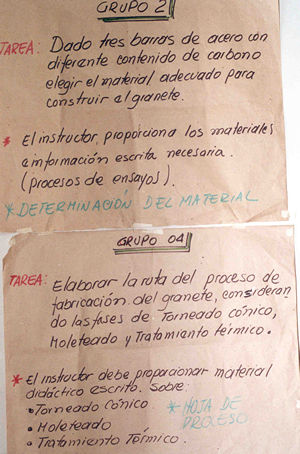 GRUPO 2
TAREA: Dado tres barras de acero con
diferente contenido de carbono
elegir el material adecuado para
construir el granete.
* El instructor proporciona los materiales
e información escrita necesaria.
(procesos de ensayos).
* DETERMINACIÓN DEL MATERIAL
GRUPO 04
TAREA: Elaborar la ruta del proceso de
fabricación del granete, consideran
do las fases de Torneado cónico,
Moleteado y Tratamiento térmico.
* El instructor debe proporcionar material
didáctico escrito. Sobre:
• Torneado Cónico. * HOJA DE
• Moleteado PROCESO
• Tratamiento Térmico.